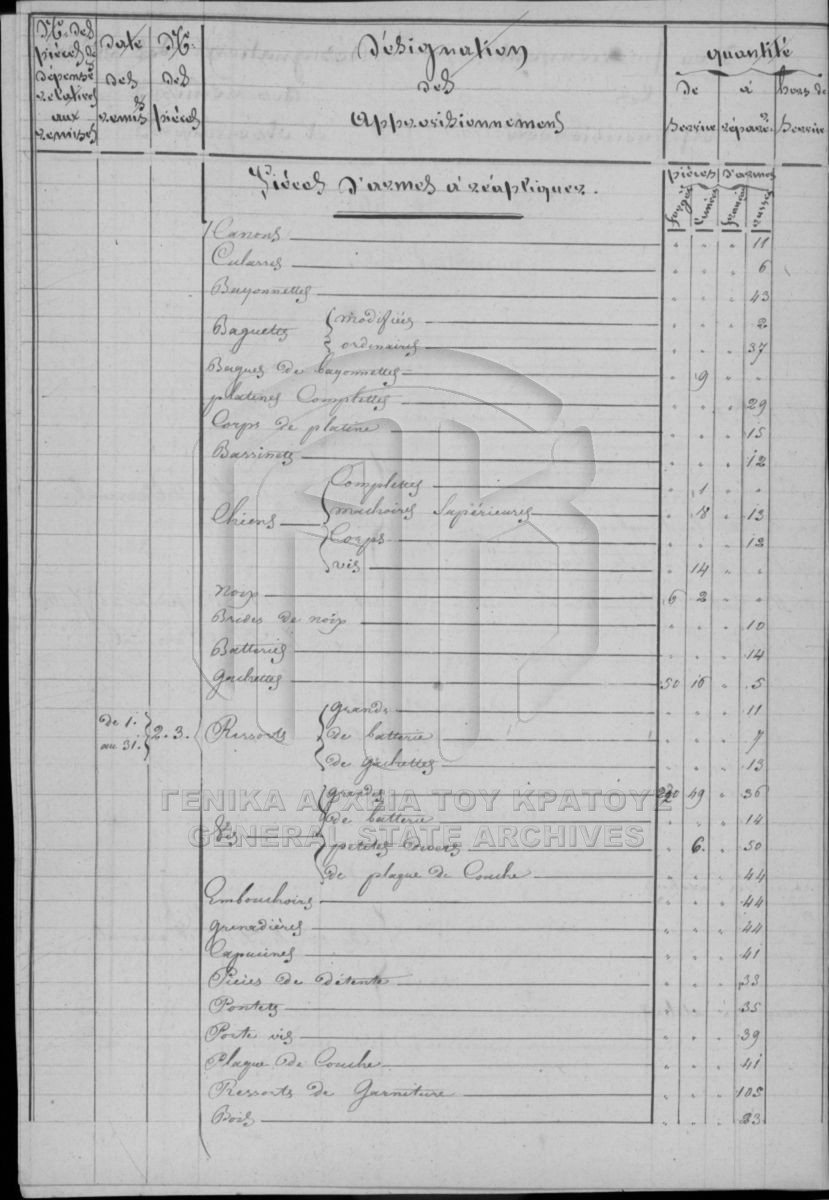 Nos des pièces de dépense relatives aux remises
date des remises
Nos des pièces
Désignation
des
Approvisionnemens
quantité
de Service
à réparer
hors de Service
Pièces d'armes à réapliquer.
pièces d'armes
forgées
limées
français
russes
Canons " " " 11
Culasses " " " 6
Bayonnettes " " " 43
Baguettes { modifiées " " " 2
{ ordinaires " " " 37
Bagues de bayonnettes " 9 " "
platines Complettes " " " 29
Corps de platine " " " 15
Bassinets " " " 12
Chiens { Complettes " 1 " "
{ machoires Supérieures " 8 " 13
{ Corps " " " 13
{ vis " 14 " "
noix 6 2 " "
Brides de noix " " " 10
Batteries " " " 14
gachettes 50 16 " 5
de 1. au 31. } 2. 3. { Ressorts { grands " " " 11
{ de batterie " " " 7
{ de gachettes " " " 13
Vis { grandes 220 49 " 36
{ de batterie " " " 14
{ petites divers " 6. " 50
{ de plaque de Couche " " " 44
Embouchoirs " " " 44
grenadières " " " 44
Capucines " " " 41
Pièces de détente " " " 33
Pontets " " " 35
Porte vis " " " 39
Plaque de Couche " " " 41
Ressorts de Garniture " " " 103
Bois " " " 23
ΓΕΝΙΚΑ ΑΡΧΕΙΑ ΤΟΥ ΚΡΑΤΟΥΣ
GENERAL STATE ARCHIVES